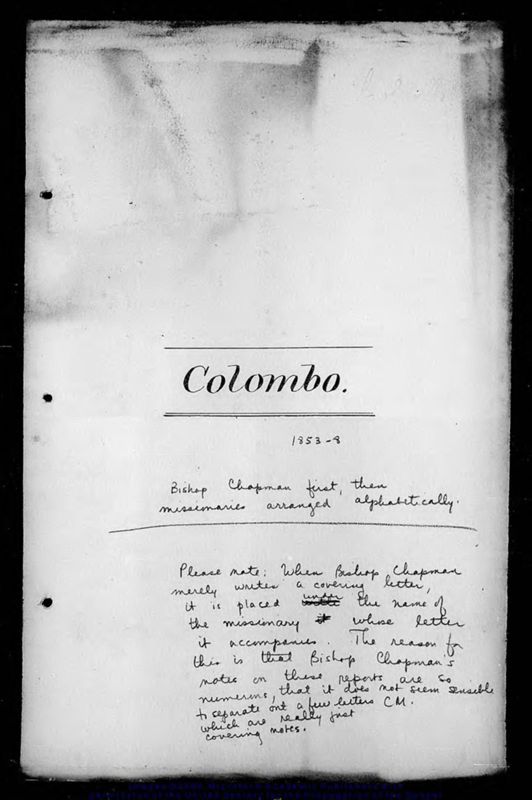 Colombo.
1853-8
Bishop Chapman first, then
missionaries arranged alphabetically.
Please note: When Bishop Chapman
merely writes a covering letter,
it is placed under the name of
the missionary whose letter
it accompanies. The reason for
this is that Bishop Chapman's
notes on these reports are so
numerous, that it does not seem sensible
to separate out a few letters CM.
which are really just
covering notes.